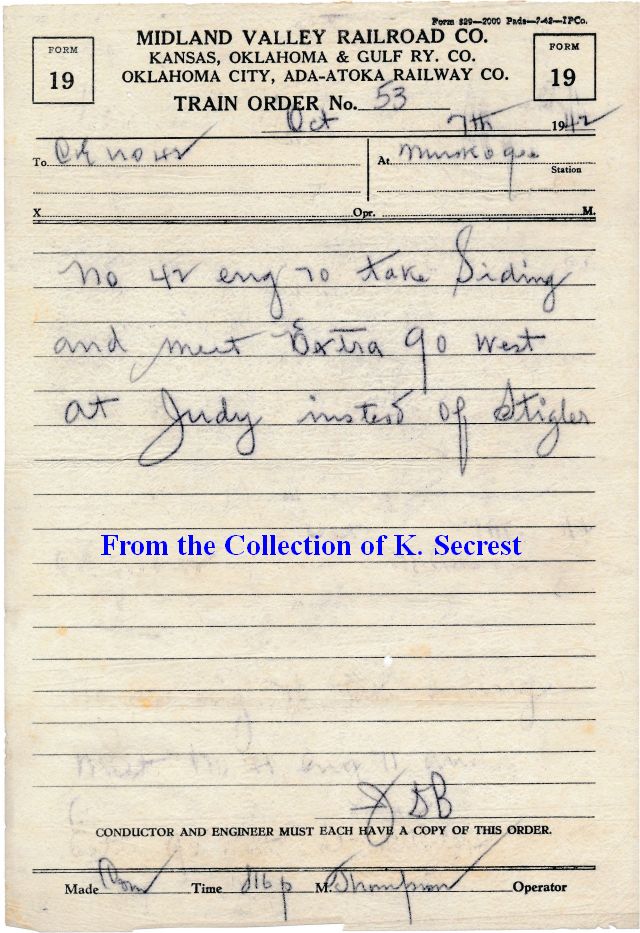 Form 829—2000 Pads—7-42—IPCo.
FORM 19
MIDLAND VALLEY RAILROAD CO.
KANSAS, OKLAHOMA & GULF RY. CO.
OKLAHOMA CITY, ADA-ATOKA RAILWAY CO.
FORM 19
TRAIN ORDER No. 53
Oct 7th 1942
To C&E No 42 At Muskogee
Station
X Opr. M.
No 42 eng 70 take Siding
and meet Extra 90 West
at Judy instead of Stigler
From the Collection of K. Secrest
JSB
CONDUCTOR AND ENGINEER MUST EACH HAVE A COPY OF THIS ORDER.
Made Com Time 816 p M. Thompson Operator